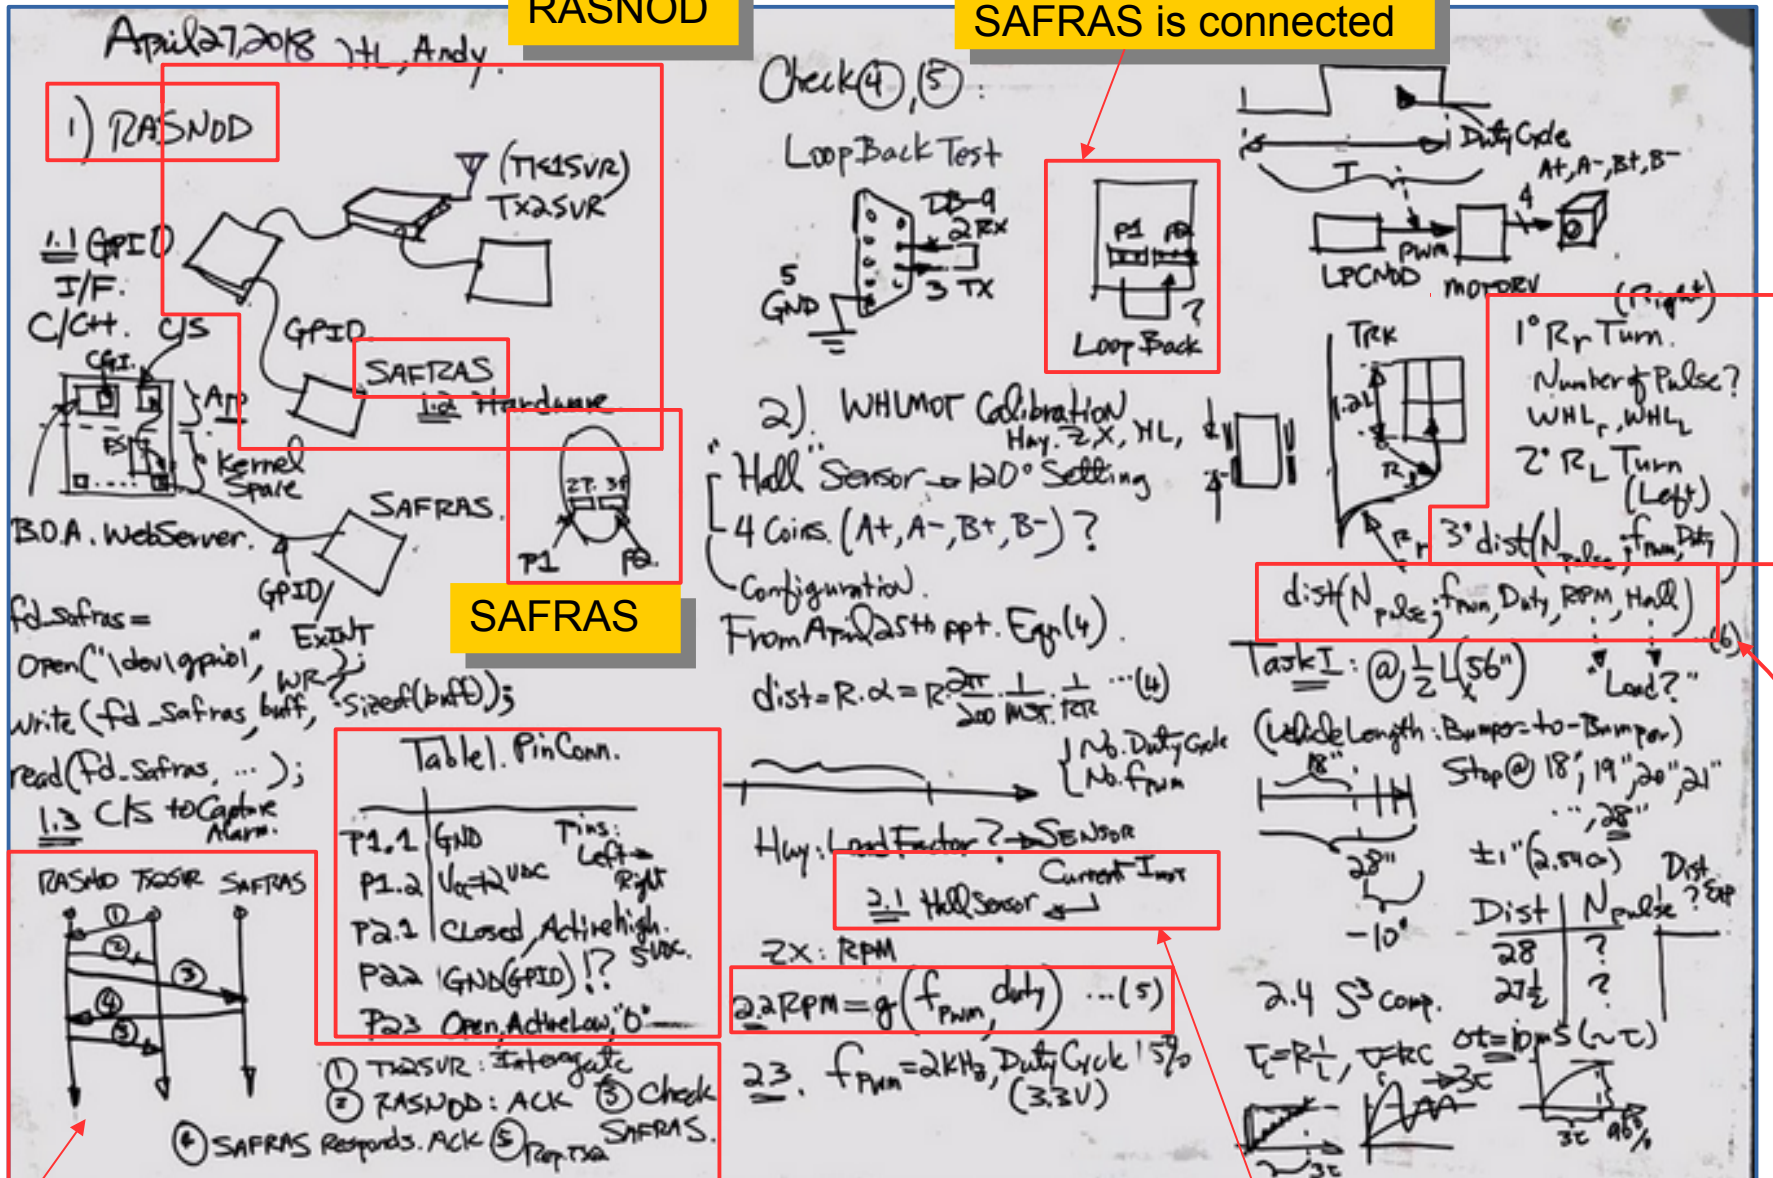 RASNOD
SAFRAS is connected
April 27, 2018 HL, Andy.
1) RASNOD
(TK1SVR)
TX2SVR
1.1 GPIO
I/F.
C/C++. C/S
CGI.
GPIO
SAFRAS
1.2 Hardware.
App
Kernel
Space
2P. 3P
P1 P2.
SAFRAS.
B.O.A. WebServer.
GPIO/
ExINT
SAFRAS
fd_safras=
open("\dev\gpio1",
WR);
write(fd_safras, buff, sizeof(buff));
read(fd_safras, ... );
1.3 C/S to Capture
Alarm.
Table1. Pin Conn.
P1.1 GND
Pins:
Left
Right
P1.2 Vcc=12VDC
P2.1 Closed, Active high.
5VDC.
P2.2 GND(GPIO)!?
P2.3 Open, Active Low, "0"
TX2SVR SAFRAS
① ② ③ ④ ⑤
① TX2SVR: Interogate
② RASNOD: ACK ③ Check
SAFRAS.
④ SAFRAS Responds. Ack ⑤ Rep. TX2
Check ④, ⑤:
LoopBack Test
DB-9
2 RX
3 TX
5
GND
P1 P2
?
Loop Back
2). WHLMOT Calibration
Hay. ZX, HL,
"Hall" Sensor → 120° Setting
(A+, A-, B+, B-)?
Configuration.
From April 25th ppt. Eqn (4).
dist = R.α = R. 2π/200 . 1/MST. . 1/RR ...(4)
No. Duty Cycle
No. fpwm
Load Factor? → SENSOR
2.1 Hall Sensor
ZX: RPM
2.2 RPM = g(fpwm, duty) ...(5)
2.3. fpwm=2kHz, Duty Cycle 15%
(3.3V)
Duty Cycle
T
A+, A-, B+, B-
4
PWM
LPCNOD
MOTDRV
TRK
1.2L
(Right)
1° Rr Turn.
Number of Pulse?
WHLr, WHLL
2° RL Turn
(Left)
Rr
3° dist(Npulse; fpwm, Duty)
dist(Npulse; fpwm, Duty, RPM, Hall)
(6)
"Load?"
Task I: @ 1/2 L (56")
(Vehicle Length: Bumper-to-Bumper)
18"
Stop @ 18", 19", 20", 21"
..., 28"
28"
±1" (2.54cm)
-10"
Dist Npulse Dist.
? Exp
28 ?
27 1/2 ?
2.4 S³ Comp.
3τ
3τ